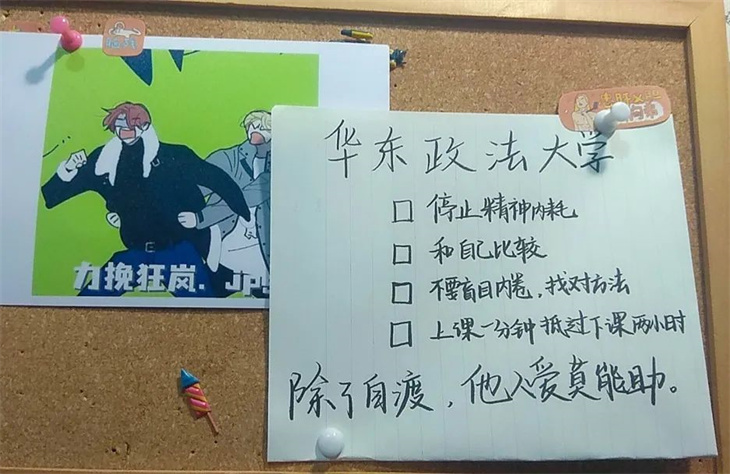 力挽狂岚.jpg
华东政法大学
停止精神内耗
和自己比较
不要盲目内卷，找对方法
上课一分钟抵过下课两小时
除了自渡，他人爱莫能助。